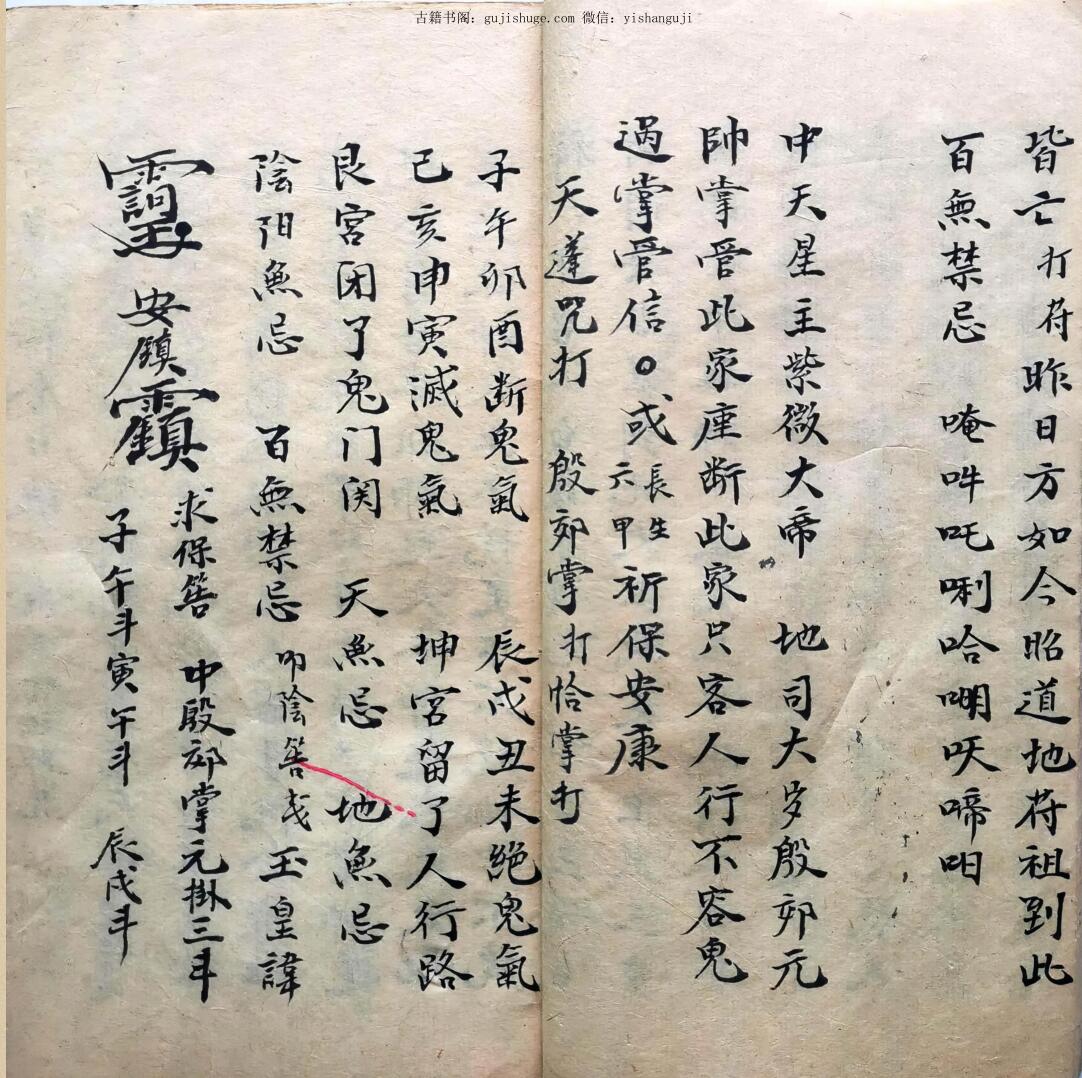 古籍书阁：gujishuge.com 微信：yishanguji
皆亡打符昨日方如今昭道地符祖到此
百無禁忌 唵吽吒唎哈㗅呋啼呾
中天星主紫微大帝 地司大岁殷郊元
帥掌管此家座断此家只容人行不容鬼
過掌管信○或長生六甲祈保安康
天蓬咒打 殷郊掌打恰掌打
子午卯酉断鬼氣 辰戍丑未絕鬼氣
己亥申寅滅鬼氣 坤宮留了人行路
艮宮闭了鬼门関 天無忌 地無忌
陰阳無忌 百無禁忌 叩陰筶或玉皇諱
求保筶 中殷郊掌元掛三斗
安鎮 子午斗寅午斗 辰戍斗